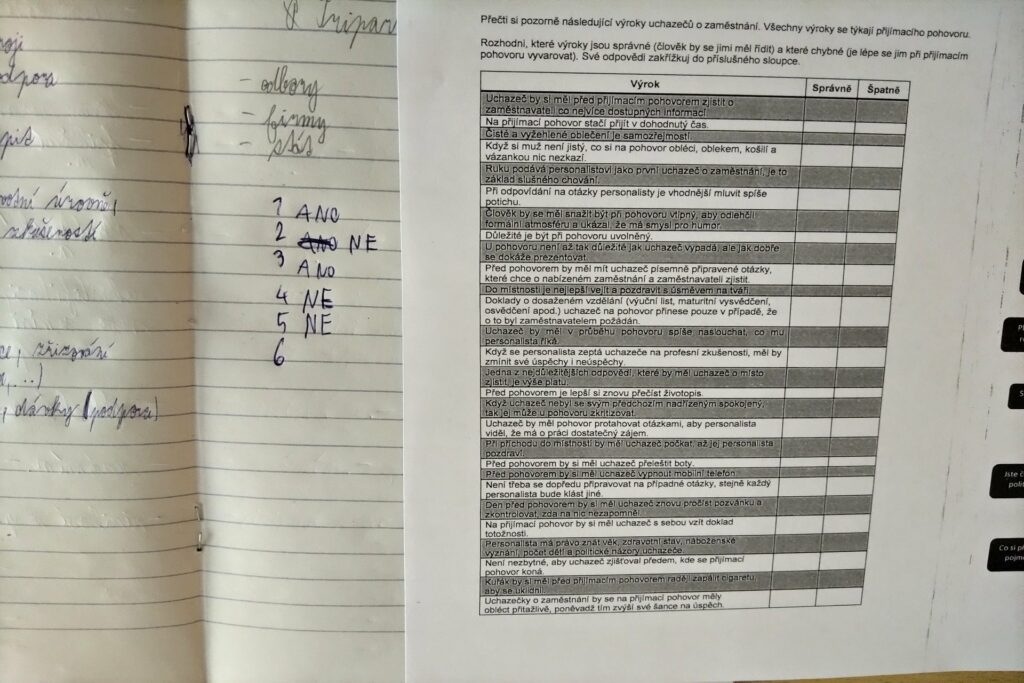 P Tripar
dpora
- odbory
- firmy
- stát
zkušenosti
1 ANO
2 ANO NE
3 ANO
4 NE
5 NE
6
, dárky (podpora)
Přečti si pozorně následující výroky uchazečů o zaměstnání. Všechny výroky se týkají přijímacího pohovoru.
Rozhodni, které výroky jsou správné (člověk by se jimi měl řídit) a které chybné (je lépe se jim při přijímacím
pohovoru vyvarovat). Své odpovědi zakřížkuj do příslušného sloupce.
Výrok Správně Špatně
Uchazeč by si měl před přijímacím pohovorem zjistit o
zaměstnavateli co nejvíce dostupných informací.
Na přijímací pohovor stačí přijít v dohodnutý čas.
Čisté a vyžehlené oblečení je samozřejmostí.
Když si muž není jistý, co si na pohovor obléci, oblekem, košilí a
vázankou nic nezkazí.
Ruku podává personalistovi jako první uchazeč o zaměstnání, je to
základ slušného chování.
Při odpovídání na otázky personalisty je vhodnější mluvit spíše
potichu.
Člověk by se měl snažit být při pohovoru vtipný, aby odlehčil
formální atmosféru a ukázal, že má smysl pro humor.
Důležité je být při pohovoru uvolněný.
U pohovoru není až tak důležité jak uchazeč vypadá, ale jak dobře
se dokáže prezentovat.
Před pohovorem by měl mít uchazeč písemně připravené otázky,
které chce o nabízeném zaměstnání a zaměstnavateli zjistit.
Do místnosti je nejlepší vejít a pozdravit s úsměvem na tváři.
Doklady o dosaženém vzdělání (výuční list, maturitní vysvědčení,
osvědčení apod.) uchazeč na pohovor přinese pouze v případě, že
o to byl zaměstnavatelem požádán.
Uchazeč by měl v průběhu pohovoru spíše naslouchat, co mu
personalista říká.
Když se personalista zeptá uchazeče na profesní zkušenosti, měl by
zmínit své úspěchy i neúspěchy.
Jedna z nejdůležitějších odpovědí, které by měl uchazeč o místo
zjistit, je výše platu.
Před pohovorem je lepší si znovu přečíst životopis.
Když uchazeč nebyl se svým předchozím nadřízeným spokojený,
tak jej může u pohovoru zkritizovat.
Uchazeč by měl pohovor protahovat otázkami, aby personalista
viděl, že má o práci dostatečný zájem.
Při příchodu do místnosti by měl uchazeč počkat, až jej personalista
pozdraví.
Před pohovorem by si měl uchazeč přeleštit boty.
Před pohovorem by si měl uchazeč vypnout mobilní telefon.
Není třeba se dopředu připravovat na případné otázky, stejně každý
personalista bude klást jiné.
Den před pohovorem by si měl uchazeč znovu pročíst pozvánku a
zkontrolovat, zda na nic nezapomněl.
Na přijímací pohovor by si měl uchazeč s sebou vzít doklad
totožnosti.
Personalista má právo znát věk, zdravotní stav, náboženské
vyznání, počet dětí a politické názory uchazeče.
Není nezbytné, aby uchazeč zjišťoval předem, kde se přijímací
pohovor koná.
Kuřák by si měl před přijímacím pohovorem raději zapálit cigaretu,
aby se uklidnil.
Uchazečky o zaměstnání by se na přijímací pohovor měly
obléct přitažlivě, poněvadž tím zvýší své šance na úspěch.
Jste č
polit
Co si př
pojme